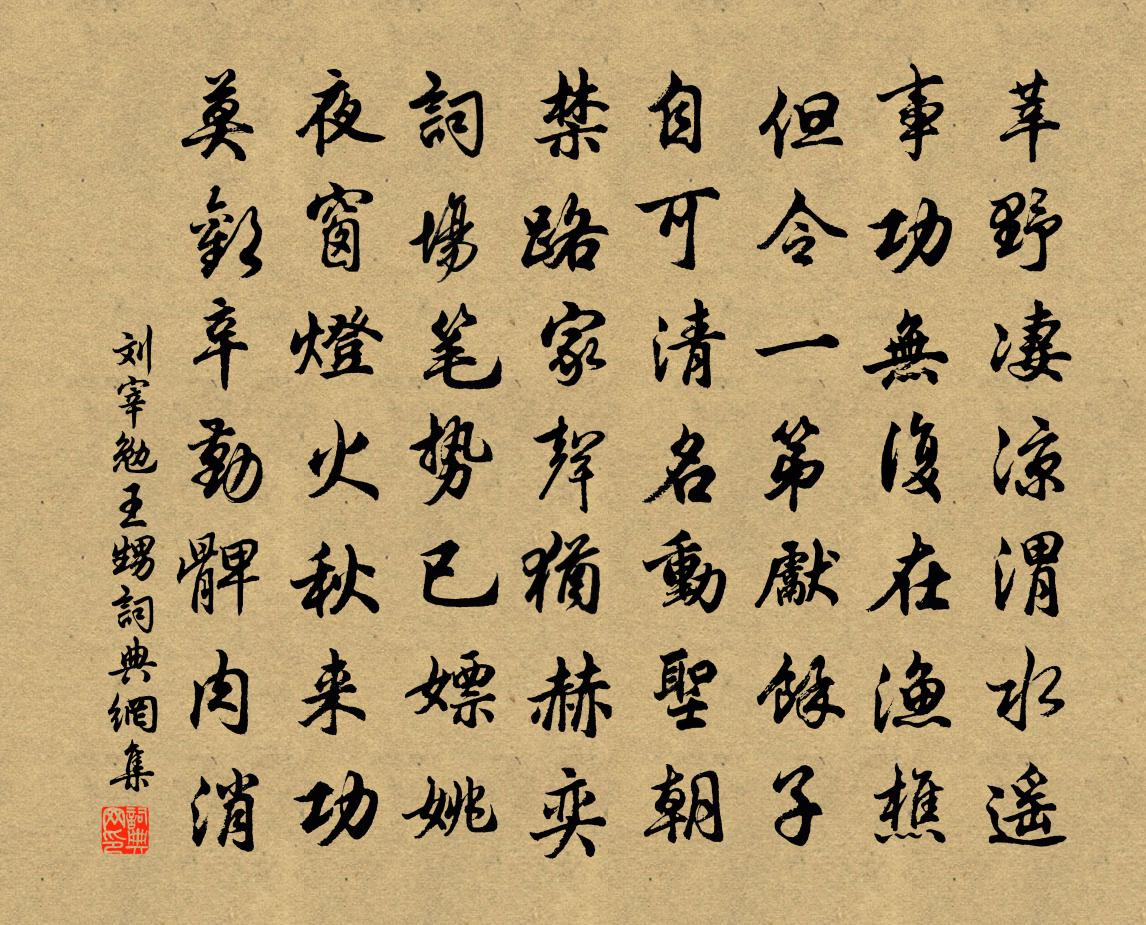 莘野凄涼渭水遥
事功無復在漁樵
但令一第獻餘子
自可清名動聖朝
禁路家聲猶赫奕
詞場笔势已嫖姚
夜窗燈火秋来功
莫歎辛勤髀肉消
刘宰勉王甥詞典網集
詞典网印